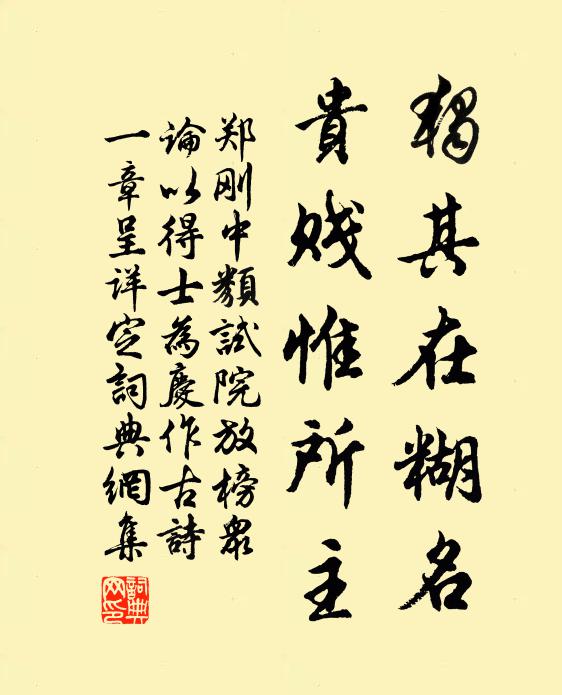 獨其在糊名
貴賤惟所主
郑刚中類試院放榜衆
論以得士為慶作古詩
一章呈详定詞典網集
詞典网印